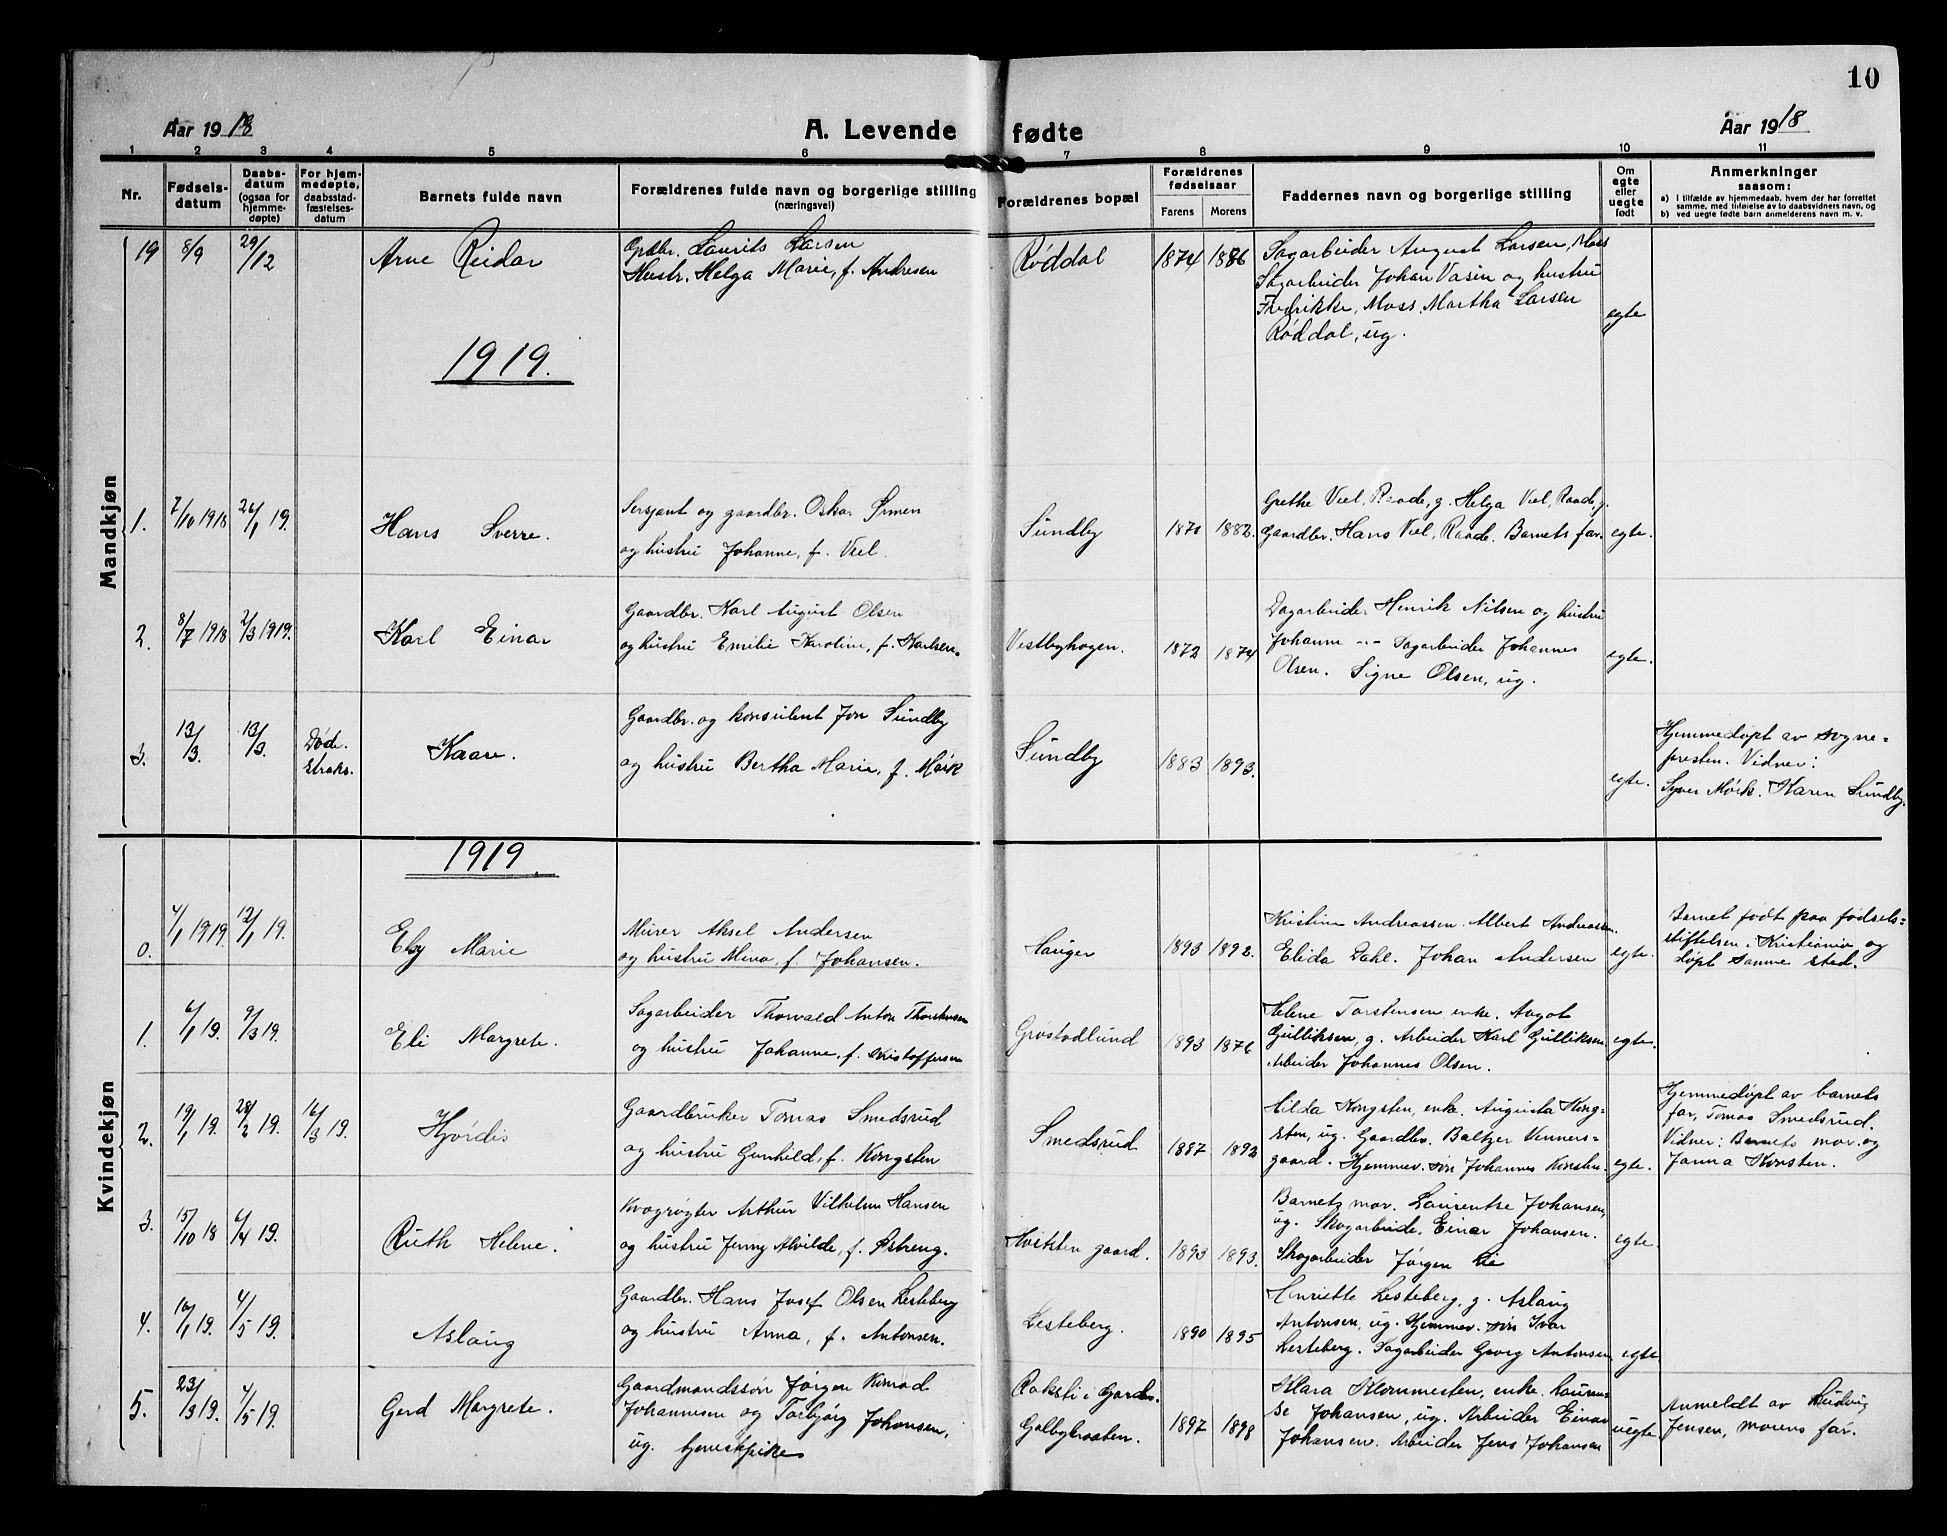 10
Aar 1918
A. Levende fødte
Aar 1918
1 2 3 4 5 6 7 8 9 10 11
Nr.
Fødselsdatum
Daabsdatum (ogsaa for hjemmedøpte)
For hjemmedøpte, daabsstadfæstelsesdatum
Barnets fulde navn
Forældrenes fulde navn og borgerlige stilling (næringsvei)
Forældrenes bopæl
Forældrenes fødselsaar
Farens Morens
Faddernes navn og borgerlige stilling
Om egte eller uegte født
Anmerkninger saasom:
a) i tilfælde av hjemmedaab, hvem der har forrettet samme, med tilføielse av to daabsvidners navn, og
b) ved uegte fødte barn anmelderens navn m. v.
Mandkjøn
19 8/9 29/12 Arne Reidar
Gpdbr. Laurits Larsen
Hustr. Helga Marie, f. Andresen
Røddal 1874 1886
Sagarbeider August Larsen, Moss
Sagarbeider Johan Vasin og hustru
Fredrikke, Moss. Martha Larsen
Røddal, ug.
egte
1919.
1. 7/10 1918 26/1 19. Hans Sverre.
Sersjant og gaardbr. Oskar
og hustru Johanne, f. Viel.
Sundby 1870 1882.
Grethe Viel, Raade, g. Helga Viel, Raade, g.
Gaardbr. Hans Viel, Raade. Barnets far.
egte.
2. 8/7 1918 2/3 1919. Karl Einar
Gaardbr. Karl August Olsen
og hustru Emilie Karoline, f. Karlsen.
Vestbyhagen. 1872 1874
Dagarbeider Henrik Nilsen og hustru
Johanne -- Dagarbeider Johannes
Olsen. Signe Olsen, ug.
egte.
3. 13/3 13/3. Døde straks. Kaare.
Gaardbr. og konsulent Jon Sundby
og hustru Bertha Marie, f. Mørk
Sundby 1883 1893.
egte.
Hjemmedøpt av sogne=
presten. Vidner:
Syver Mørk. Karen Sundby.
Kvindekjøn
1919.
0. 4/1 1919 12/1 19. Elsy Marie
Murer Aksel Andersen
og hustru Mina, f. Johansen.
Hauger 1893 1892.
Kristine Andreassen. Albert Andreassen.
Elida Dahl. Johan Andersen
egte.
Barnet født paa fødsels=
stiftelsen, Kristiania og
døpt samme sted.
1. 6/1 19. 9/3 19. Eli Margrete.
Sagarbeider Thorvald Anton
og hustru Johanne, f. Kristoffersen
Grøstadlund 1893 1876
Helene Torstensen, enke. Aagot
Gulliksen, g. Arbeider Karl Gulliksen
Arbeider Johannes Olsen.
egte.
2. 19/1 19. 28/2 19. 16/3 19. Hjørdis
Gaardbruker Tomas Smedsrud
og hustru Gunhild, f. Kongsten
Smedsrud 1887 1892
Hilda Kongsten, enke. Augusta Kong-
sten, ug. Gaardbr. Baltzer Venners=
gaard. Hjemmev. søn Johannes Konsten.
egte.
Hjemmedøpt av barnets
far, Tomas Smedsrud.
Vidner: Barnets mor og
Janna Konsten.
3. 15/10 18 6/4 19. Ruth Helene.
Kvægrøgter Arthur Vilhelm Hansen
og hustru Jenny Alvilde, f. Østreng.
Hvitsten gaard. 1893 1893.
Barnets mor. Laurentse Johansen,
ug. Skogarbeide. Einar Johansen.
Skogarbeider Jørgen Lie
egte.
4. 16/1 19. 4/5 19. Aslaug
Gaardbr. Hans Josef Olsen Lesteberg
og hustru Anna, f. Antonsen.
Lesteberg. 1890 1895
Henriette Lesteberg, g. Aslaug
Antonsen, ug. Hjemmev. søn Ivar
Lesteberg. Dagarbeider Georg Antonsen
egte
5. 23/3 19. 4/5 19. Gerd Margrete.
Gaardmandssøn Jørgen Konrad
Johannesen og Torbjørg Johansen,
ug. tjenestpike
Raksti i Garder
Galbybraaten. 1897 1898
Klara Klommesten, enke. Lauren-
se Johansen, ug. Arbeider Einar
Johansen. Arbeider Jens Johansen
uegte
Anmeldt av Ludvig
Jensen, morens far.